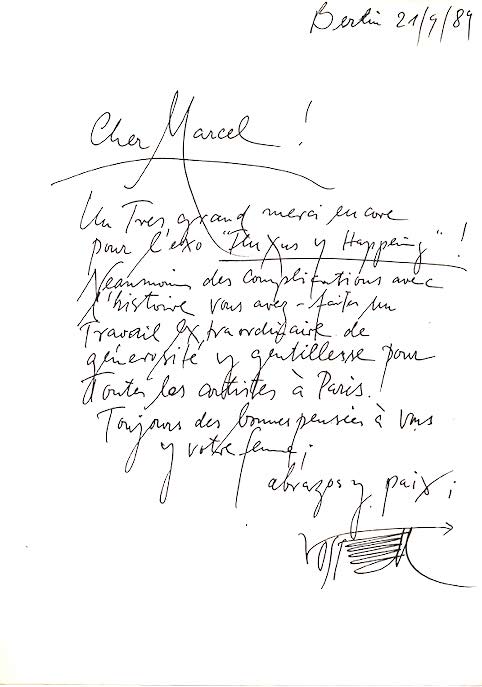 Berlin 21/9/89
Cher Marcel !
Un Tres grand merci encore
pour l'exo "Fluxus y Happening" !
Neansmoin des complications avec
l'histoire vous avez-faites un
Travail Extraordinaire de
générosité y gentillesse pour
Toutes les artistes à Paris.!
Toujours des bonnes pensées à vous
y votre femme;
abrazos y paix;